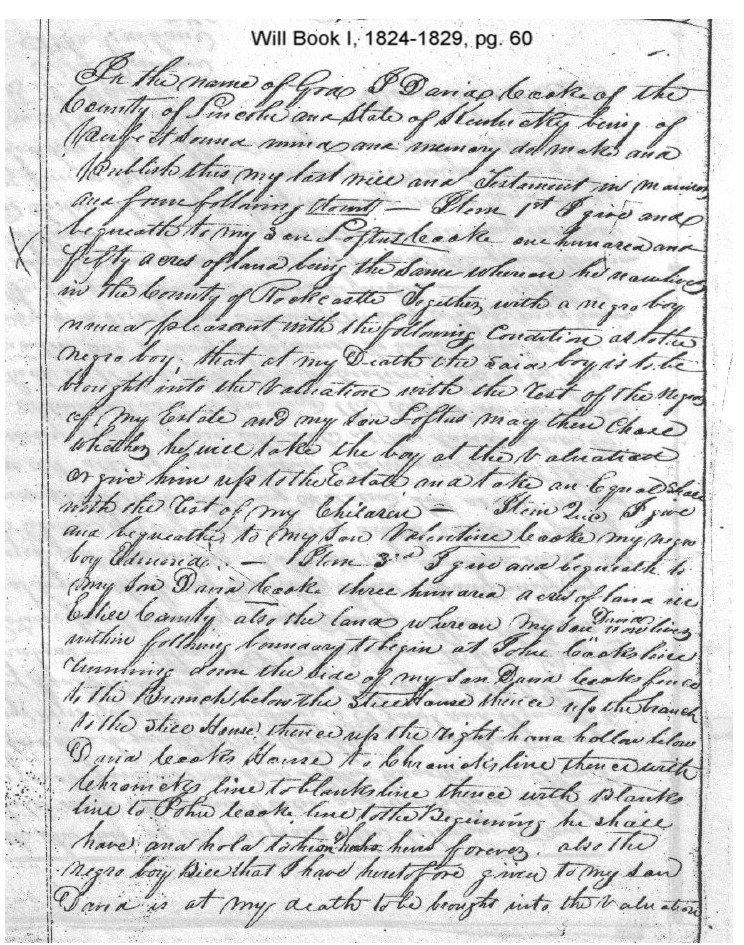 Will Book I, 1824-1829, pg. 60
In the name of God I David Cooke of the
County of Lincoln and State of Kentucky being of
Perfect sound mind and memory do make and
Publish this my last will and Testament in manner
and form following — Item 1st I give and
bequeath to my Son Loftus Cooke one hundred and
fifty acres of land being the same whereon he now lives
in the County of Rockcastle Together with a negro boy
named pleasant with the following Condition as to the
negro boy, that at my Death the said boy is to be
brought into the Valuation with the rest of the negroes
of my Estate and my son Loftus may then Chose
whether he will take the boy at the Valuation
or give him up to the Estate and take an Equal share
with the rest of my Children — Item 2nd I give
and bequeathe to my Son Valentine Cooke my negro
boy Edmund. — Item 3rd I give and bequeath to
my Son David Cooke three hundred acres of land in
Estice County also the land whereon my Son David now lives
within following boundary to begin at John Cooks line
running down the side of my Son David Cooks fence
to the Branch below the Still House thence up the branch
to the Still House, thence up the right hand hollow below
David Cooks House to Chronicks line thence with
Chronicks line to Blanks line thence with Blanks
line to John Cooke line to the Beginning he shall
have and hold to him & his heirs forever. also the
negro boy Bice that I have heretofore given to my Son
David is at my death to be brought into the Valuation